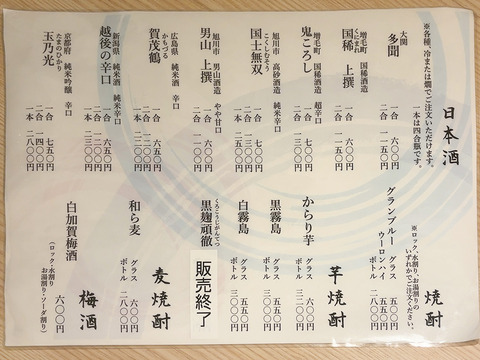 日本酒
※各種、冷または燗でご注文いただけます。
一本は四合瓶です。
大関
多聞
一合 六〇〇円
二合 一一〇〇円
増毛町 国稀酒造
くにまれ
国稀 上撰
一合
二合
増毛町 国稀酒造 超辛口
鬼ころし
一合 七〇〇円
二合 一三〇〇円
旭川市 高砂酒造 純米辛口
こくしむそう
国士無双
一合 七〇〇円
二合 一三〇〇円
一本
旭川市 男山酒造 やや甘口
男山 上撰
一合 六〇〇円
二合 一一〇〇円
広島県 純米酒 辛口
かもづる
賀茂鶴
一合 六五〇円
二合 一二〇〇円
一本
新潟県 純米酒 純米辛口
越後の辛口
一合 六五〇円
二合 一二〇〇円
一本 二三〇〇円
京都府 純米吟醸 辛口
たまのひかり
玉乃光
一合 七五〇円
二合 一四〇〇円
一本 二八〇〇円
焼酎
※ロック、水割り、お湯割りの
いずれかでご注文ください。
グランブルー
グラス 五五〇円
ウーロンハイ 五五〇円
ボトル 二八〇〇円
芋焼酎
からり芋
グラス 六〇〇円
ボトル
黒霧島
グラス 五五〇円
ボトル
白霧島
グラス 五五〇円
ボトル
くろこうじがんてつ
黒麹頑徹
販売終了
麦焼酎
和ら麦
グラス 五五〇円
ボトル 二八〇〇円
梅酒
白加賀梅酒
六〇〇円
(ロック・水割り
お湯割り・ソーダ割り)